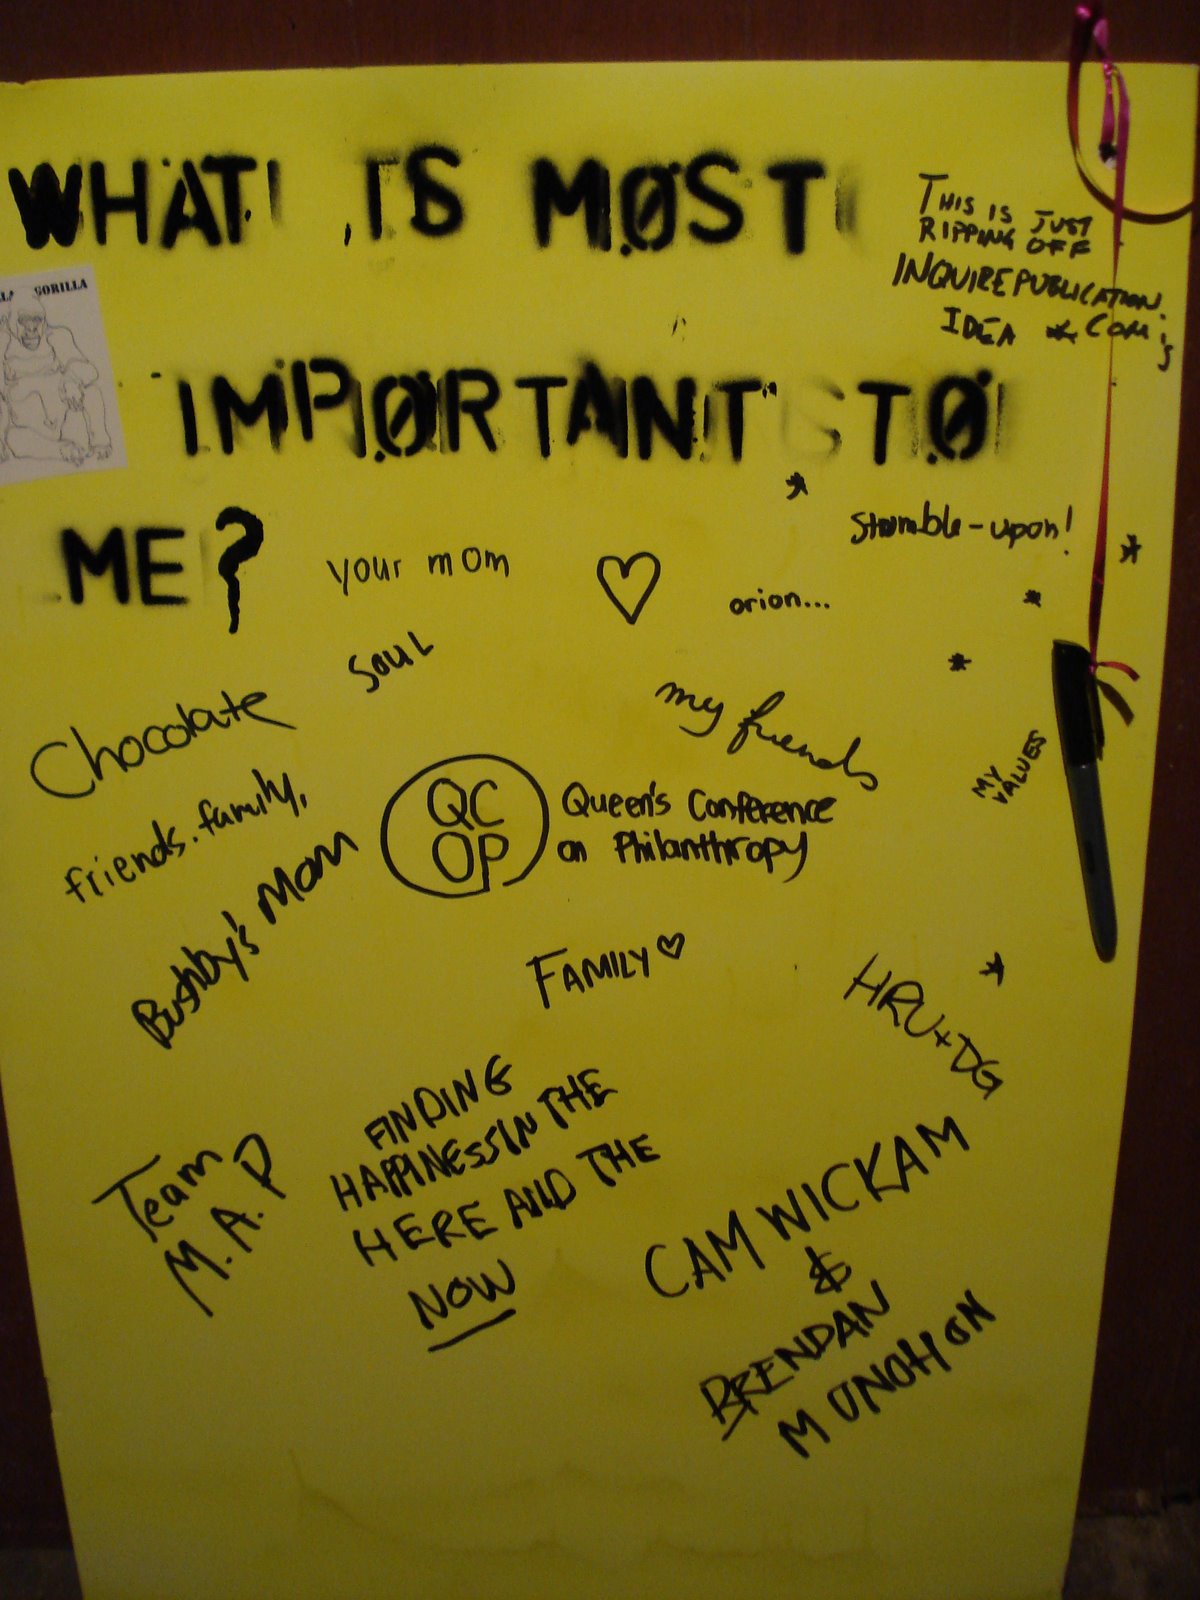 WHAT IS MOST
THIS IS JUST
RIPPING OFF
INQUIREPUBLICATION.
COM's
IDEA
GORILLA
IMPORTANT TO
ME?
your mom
Stumble-upon!
orion...
soul
Chocolate
my friends
MY
VALUES
friends. family,
QC
OP
Queen's Conference
on Philanthropy
Bushby's Mom
FAMILY
HRU+DG
FINDING
HAPPINESS IN THE
HERE AND THE
NOW
Team
M.A.P
CAM WICKAM
&
BRENDAN
MONOHON